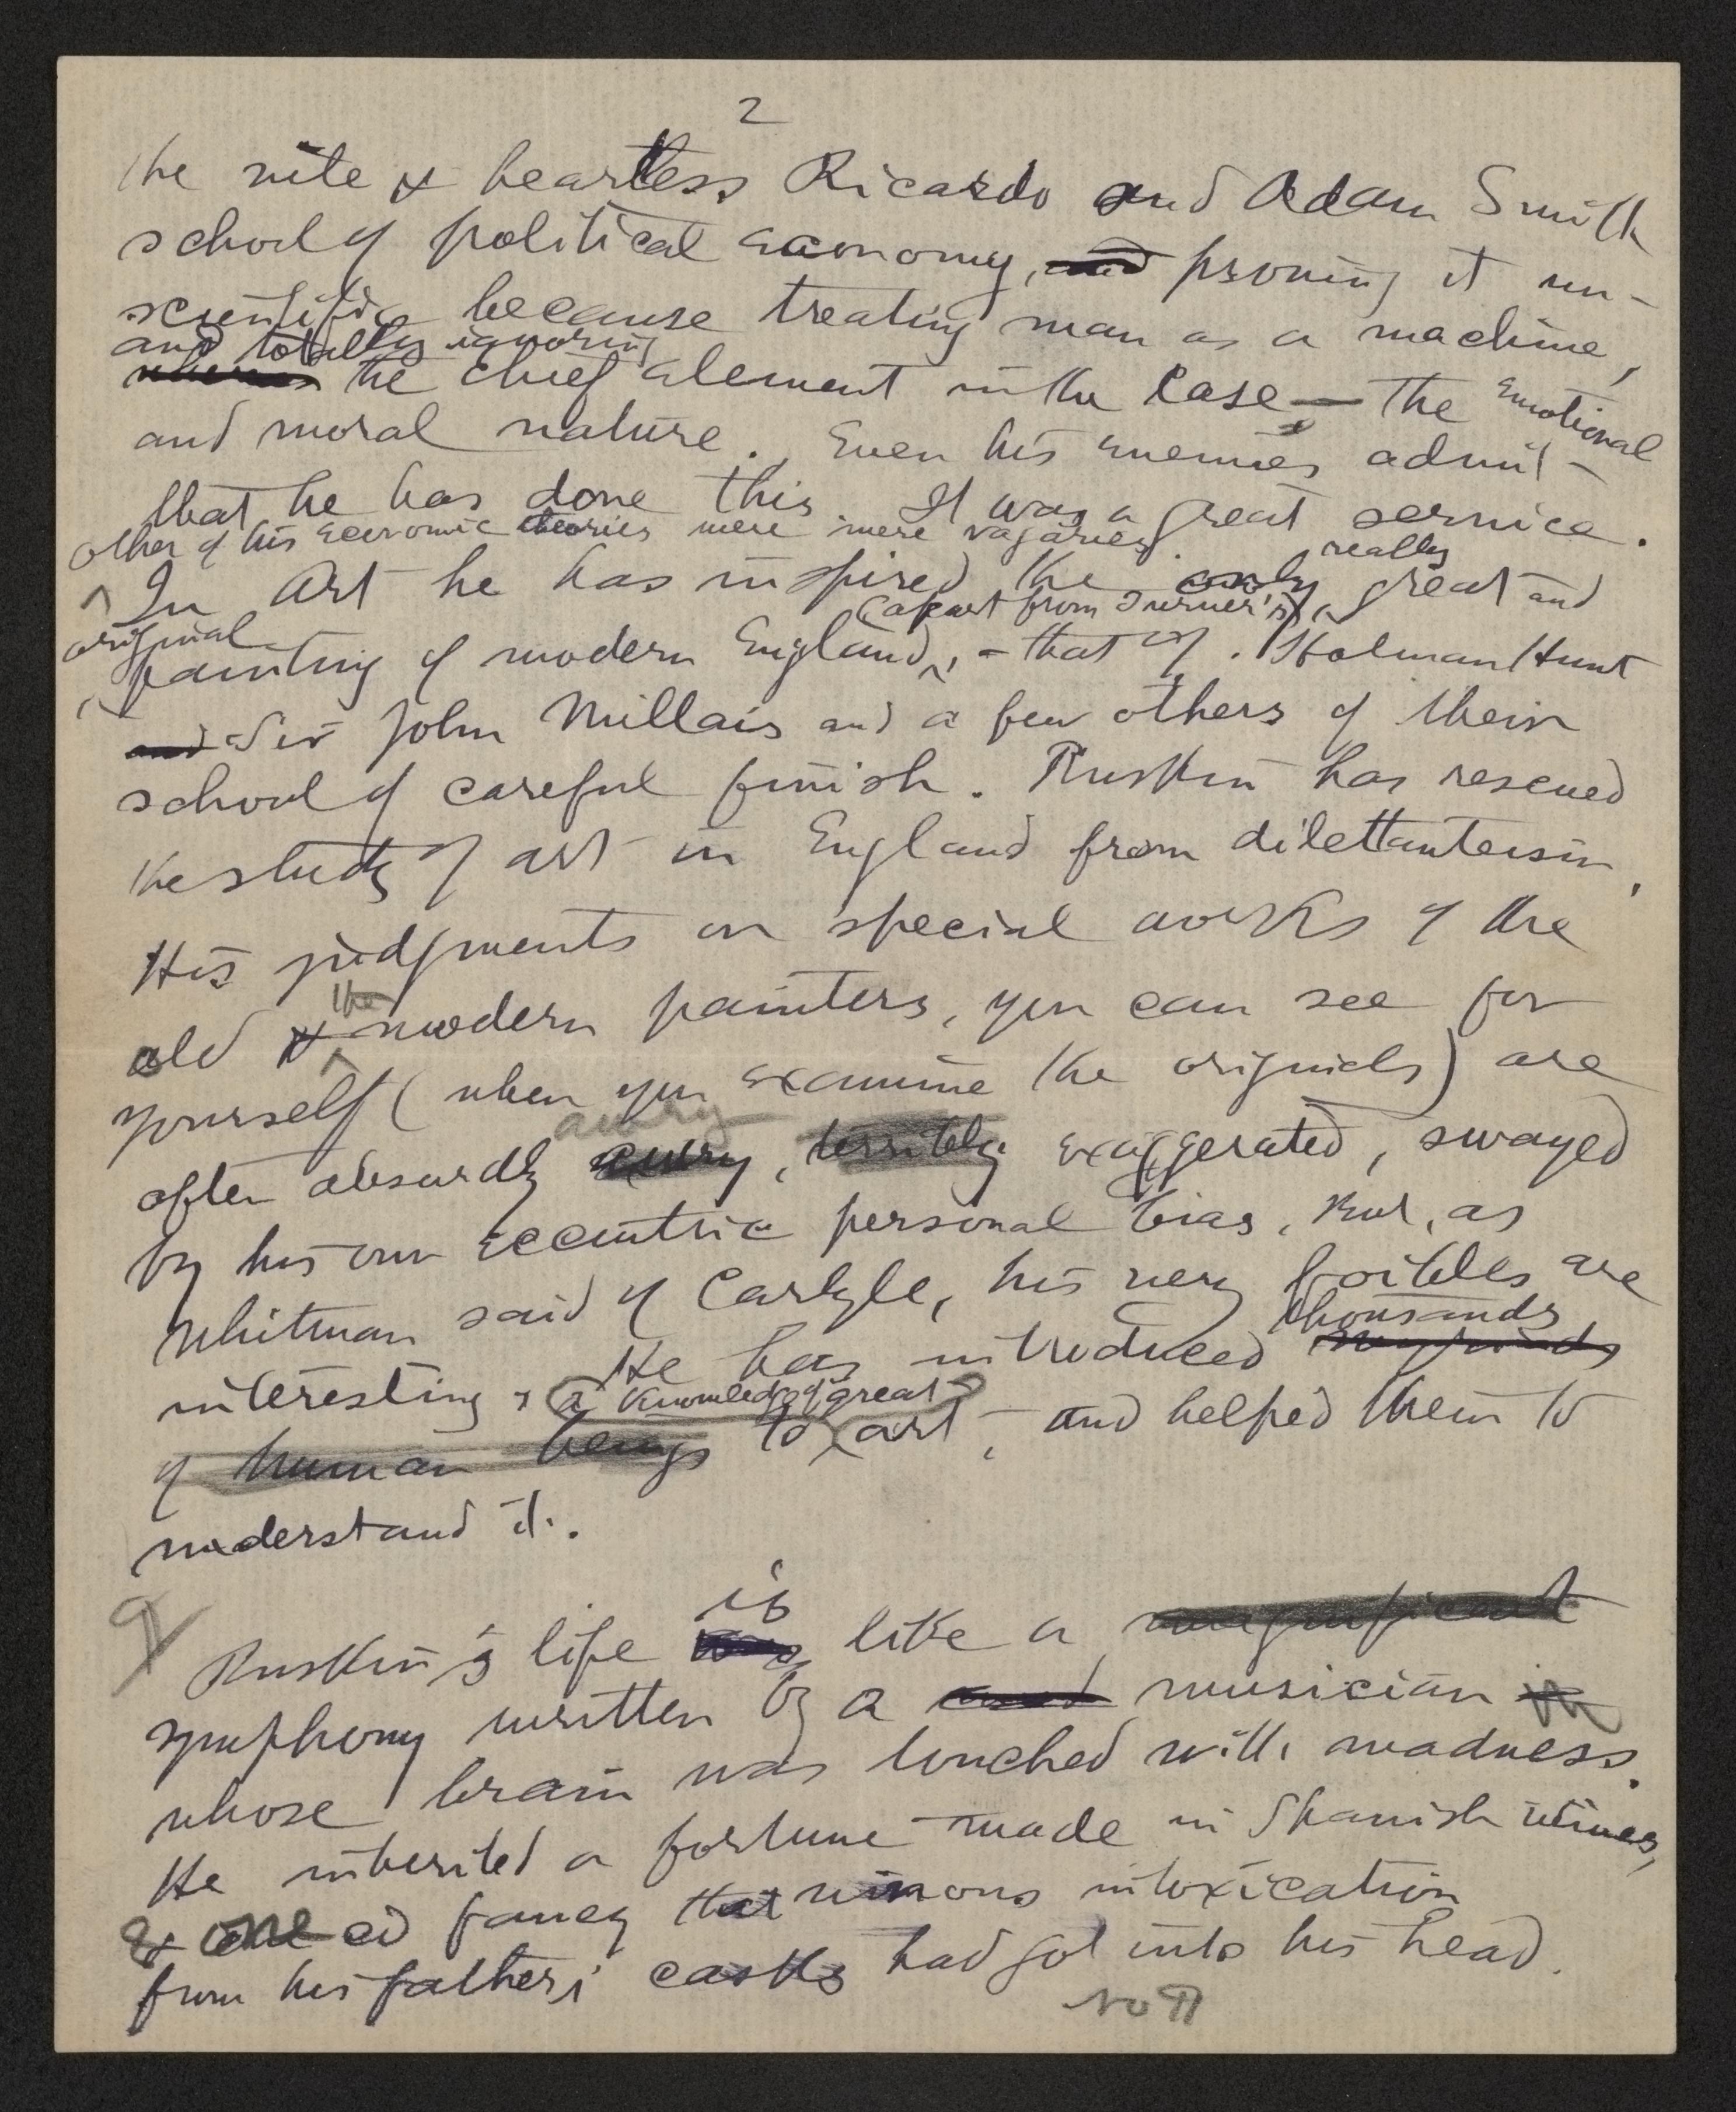 2
the vile & heartless Ricardo and Adam Smith
school of political economy, and proving it un-
scientific because treating man as a machine,
and totally ignoring
whereas the chief element in the case — the emotional
and moral nature. Even his enemies admit
that he has done this. It was a great service.
Other of his economic theories were mere vagaries.
In Art he has inspired the only really great and
original (apart from Turner's)
painting of modern England, - that of Holman Hunt
and Sir John Millais and a few others of their
school of careful finish. Ruskin has rescued
the study of art in England from dilettanteism.
His judgments on special works of the
old & the modern painters, you can see for
yourself (when you examine the originals) are
awry
often absurdly awry, terribly exaggerated, swayed
by his own eccentric personal bias. But, as
Whitman said of Carlyle, his very foibles are
thousands
interesting. He has introduced myriads
a knowledge of great
of human beings to art, and helped them to
understand it.
¶ Ruskin's life is like a magnificent
symphony written by a mad musician
whose brain was touched with madness.
He inherited a fortune made in Spanish wines,
& one cd fancy that vinous intoxication
from his father's casks had got into his head.
No ¶